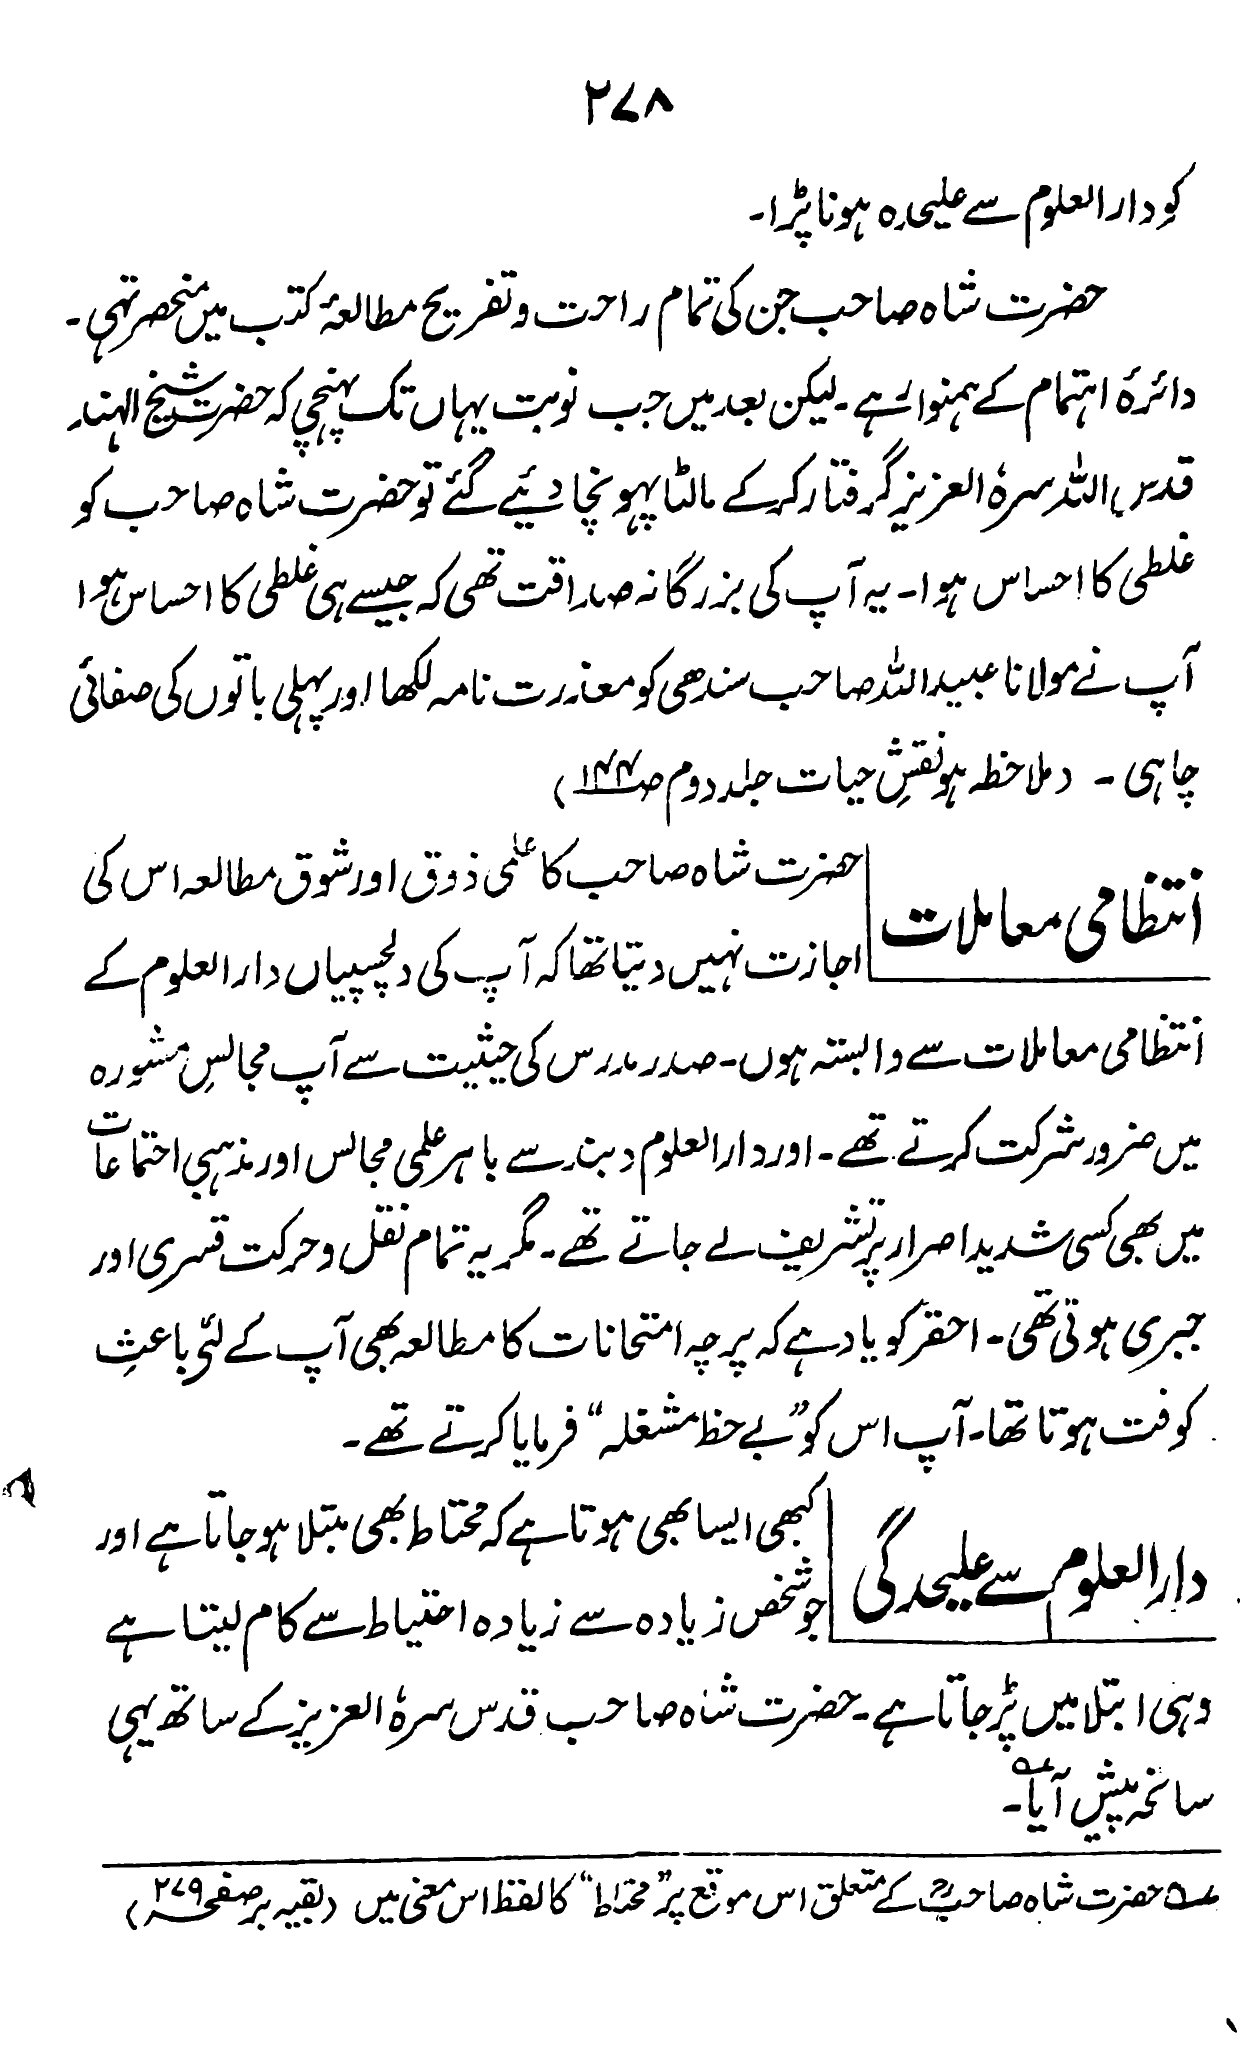 ۲۷۸
کو دارالعلوم سے علیحدہ ہونا پڑا۔
حضرت شاہ صاحب جن کی تمام راحت و تفریح مطالعۂ کتب میں منحصر تھی۔
دائرۂ اہتمام کے ہمنوا رہے۔ لیکن بعد میں جب نوبت یہاں تک پہنچی کہ حضرت شیخ الہند
قدس اللہ سرہٗ العزیز گرفتار کر کے مالٹا پہونچا دئیے گئے تو حضرت شاہ صاحب کو
غلطی کا احساس ہوا۔ یہ آپ کی بزرگانہ صداقت تھی کہ جیسے ہی غلطی کا احساس ہوا
آپ نے مولانا عبیداللہ صاحب سندھی کو معذرت نامہ لکھا اور پہلی باتوں کی صفائی
چاہی۔ (ملاحظہ ہو نقشِ حیات جلد دوم ص۱۴۴)
انتظامی معاملات
حضرت شاہ صاحب کا علمی ذوق اور شوق مطالعہ اس کی
اجازت نہیں دیتا تھا کہ آپ کی دلچسپیاں دارالعلوم کے
انتظامی معاملات سے وابستہ ہوں۔ صدر مدرس کی حیثیت سے آپ مجالسِ مشورہ
میں ضرور شرکت کرتے تھے۔ اور دارالعلوم دیوبند سے باہر علمی مجالس اور مذہبی اجتماعات
میں بھی کسی شدید اصرار پر تشریف لے جاتے تھے۔ مگر یہ تمام نقل و حرکت قسری اور
جبری ہوتی تھی۔ احقر کو یاد ہے کہ پرچہ امتحانات کا مطالعہ بھی آپ کے لئی باعثِ
کوفت ہوتا تھا۔ آپ اس کو ”بے حظ مشغلہ“ فرمایا کرتے تھے۔
دارالعلوم سے علیحدگی
کبھی ایسا بھی ہوتا ہے کہ محتاط بھی مبتلا ہو جاتا ہے اور
جو شخص زیادہ سے زیادہ احتیاط سے کام لیتا ہے
وہی ابتلا میں پڑ جاتا ہے۔ حضرت شاہ صاحب قدس سرہٗ العزیز کے ساتھ یہی
سانحہ پیش آیا عہ۔
عہ حضرت شاہ صاحبؒ کے متعلق اس موقع پر ”محتاط“ کا لفظ اس معنی میں (بقیہ بر صفحہ ۲۷۹)